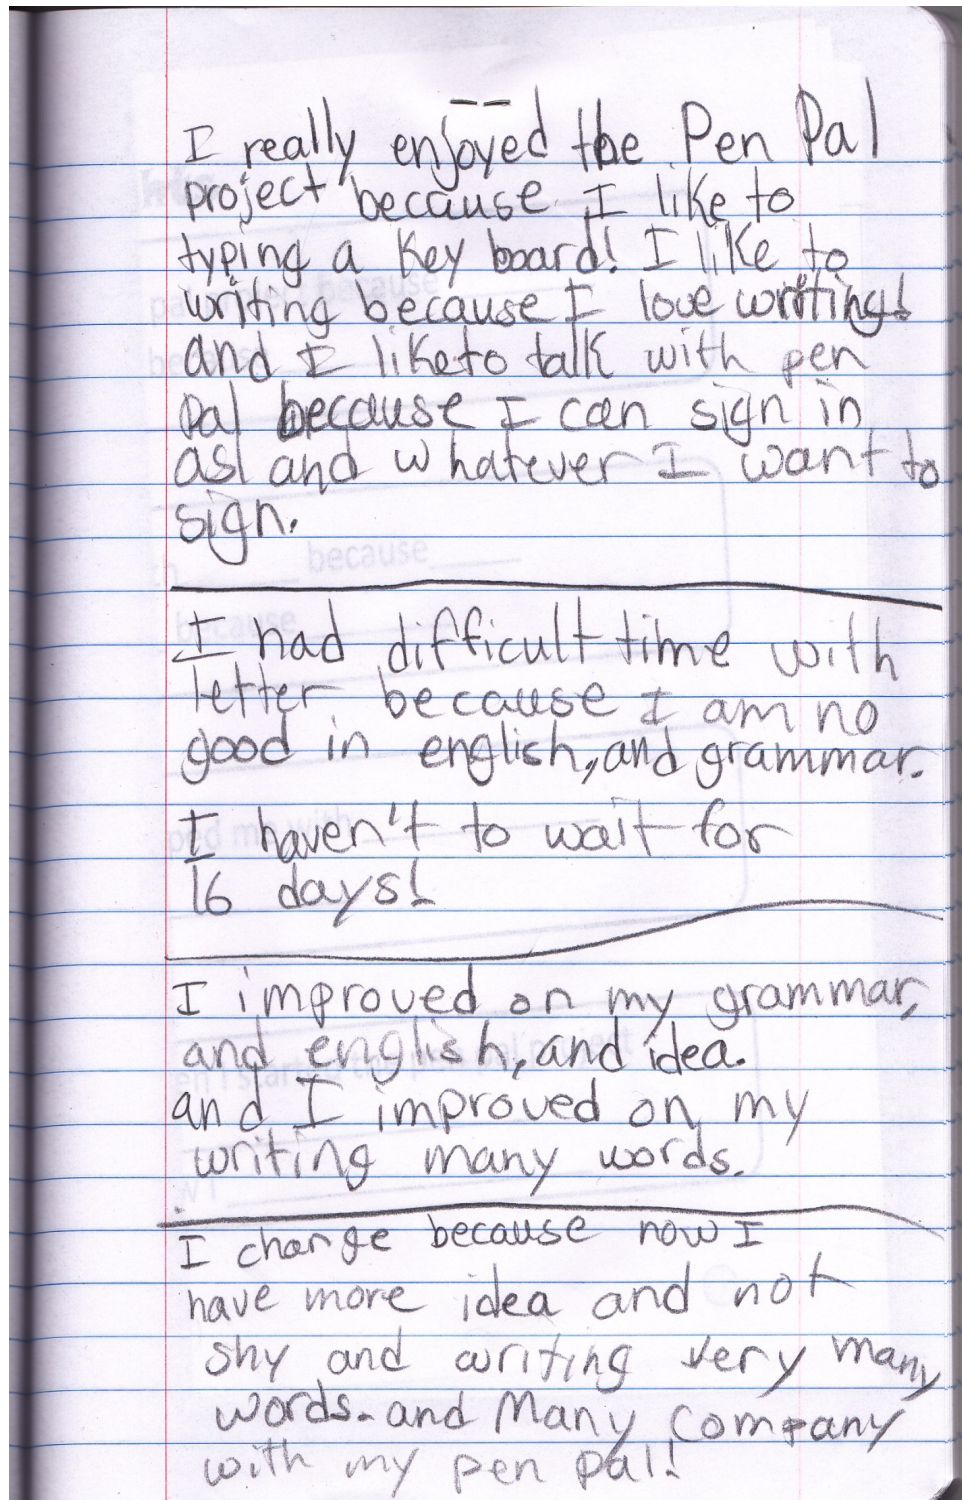 I really enjoyed the Pen Pal
project because I like to
typing a key board! I like to
writing because I love writing!
and I like to talk with pen
pal because I can sign in
asl and whatever I want to
sign.
because
because
I had difficult time with
letter because I am no
good in english, and grammar.
I haven't to wait for
16 days!
I improved on my grammar,
and english, and idea.
and I improved on my
writing many words.
I change because now I
have more idea and not
shy and writing very many
words. and Many Company
with my pen pal!